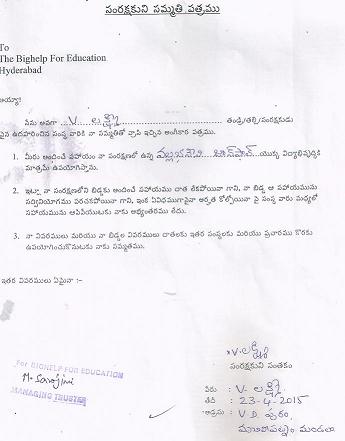 సంరక్షకుని సమ్మతి పత్రము
To
The Bighelp For Education
Hyderabad
అయ్యా!
నేను అనగా V. లక్ష్మి తండ్రి/తల్లి/సంరక్షకుడు
పైన ఉదహరించిన సంస్థ వారికి నా సమ్మతితో వ్రాసి ఇచ్చిన అంగీకార పత్రము.
1. మీరు అందించే సహాయం నా సంరక్షణలో ఉన్న యొక్క విద్యాభివృద్ధికి
మాత్రమే ఉపయోగిస్తాను.
2. ఇట్లా నా సంరక్షణలోని బిడ్డకు అందించే సహాయము దాత లేకపోయినా గాని, నా బిడ్డ ఆ సహాయమును
సద్వినియోగము పరచకపోయినా గాని, ఇంక ఏవిధముగానైనా అర్హత కోల్పోయినా పై సంస్థ వారు మధ్యలో
సహాయమును ఆపివేయుటకు నాకు అభ్యంతరము లేదు.
3. నా వివరములు మరియు నా బిడ్డల వివరములు దాతలకు ఇతర సంస్థలకు మరియు ప్రచారము కొరకు
ఉపయోగించుకొనుటకు నాకు సమ్మతము.
ఇతర వివరములు ఏమైనా :-
For BIGHELP FOR EDUCATION
M. Sarojini
MANAGING TRUSTEE
V. లక్ష్మి
సంరక్షకుని సంతకం
పేరు : V. లక్ష్మి
తేది : 23-4-2015
అడ్రసు : V.D. పురం,
మండలం